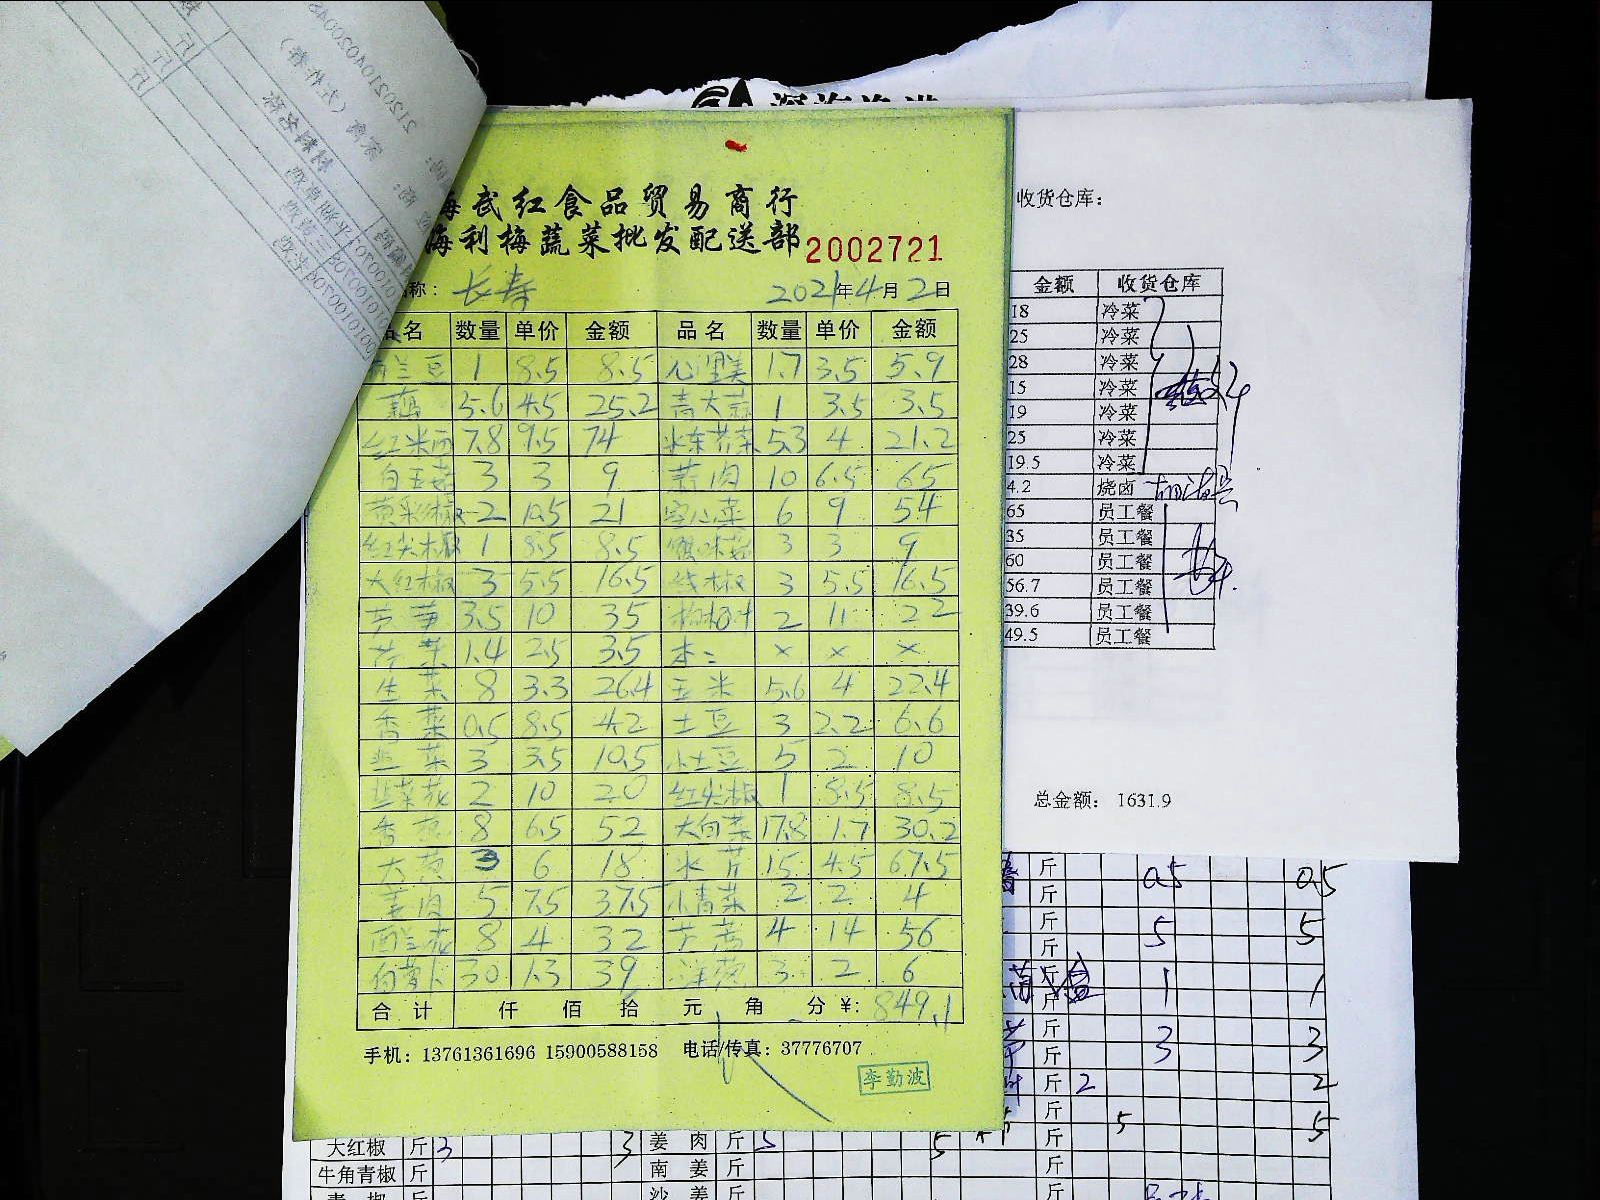 武红食品贸易商行
海利梅蔬菜批发配送部 2002721
称： 长寿 2021年4月2日
品名 数量 单价 金额 品名 数量 单价 金额
兰豆 1 8.5 8.5 心里美 1.7 3.5 5.9
藕 5.6 4.5 25.2 青大蒜 1 3.5 3.5
红米西 7.8 9.5 74 水东芥菜 5.3 4 21.2
白玉菇 3 3 9 蒜肉 10 6.5 65
黄彩椒 2 10.5 21 空心菜 6 9 54
红尖椒 1 8.5 8.5 蟹味菇 3 3 9
大红椒 3 5.5 16.5 线椒 3 5.5 16.5
芦笋 3.5 10 35 2 11 22
芹菜 1.4 2.5 3.5 本二 × × ×
生菜 8 3.3 26.4 玉米 5.6 4 22.4
香菜 0.5 8.5 4.2 土豆 3 2.2 6.6
韭菜 3 3.5 10.5 小土豆 5 2 10
韭菜花 2 10 20 红尖椒 1 8.5 8.5
香葱 8 6.5 52 大白菜 17.8 1.7 30.2
大葱 3 6 18 水芹 15 4.5 67.5
姜肉 5 7.5 37.5 小青菜 2 2 4
西兰花 8 4 32 4 14 56
白萝卜 30 1.3 39 洋葱 3 2 6
合计 仟 佰 拾 元 角 分 ¥: 849.1
手机：13761361696 15900588158 电话/传真：37776707
李勤波
收货仓库：
金额 收货仓库
18 冷菜
25 冷菜
28 冷菜
15 冷菜
19 冷菜
25 冷菜
19.5 冷菜
4.2 烧卤
65 员工餐
35 员工餐
60 员工餐
56.7 员工餐
39.6 员工餐
49.5 员工餐
总金额： 1631.9
斤 0.5 0.5
斤
斤 5 5
斤
斤 1 1
斤
斤 3 3
斤
斤 2 2
斤 5 5
斤
大红椒 斤 3 3 姜肉 斤 5 5
牛角青椒 斤 南姜 斤 斤
青椒 斤 沙姜 斤 斤